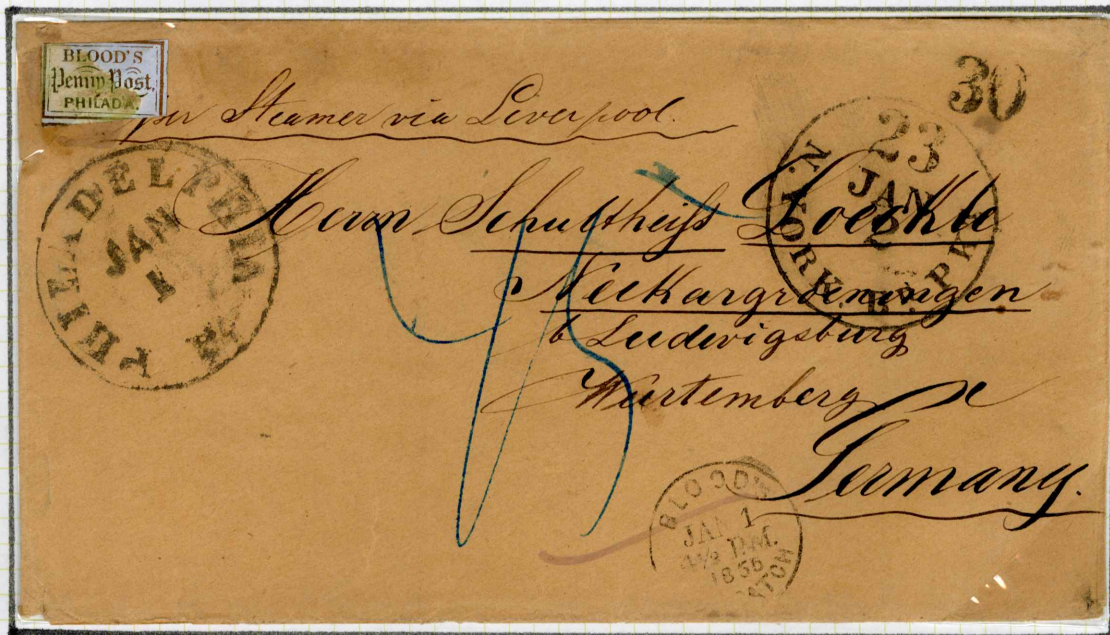 BLOOD'S
Penny Post,
PHILADA.
30
per Steamer via Liverpool.
PHILADELPHIA Pa
JAN
1
23
JAN
2
N. YORK. BR. PKT
Herrn Schultheiß Loeckle
Neckargroeningen
b Ludwigsburg
Würtemberg
Germany.
45
BLOOD'S
JAN 1
4½ P.M.
1856